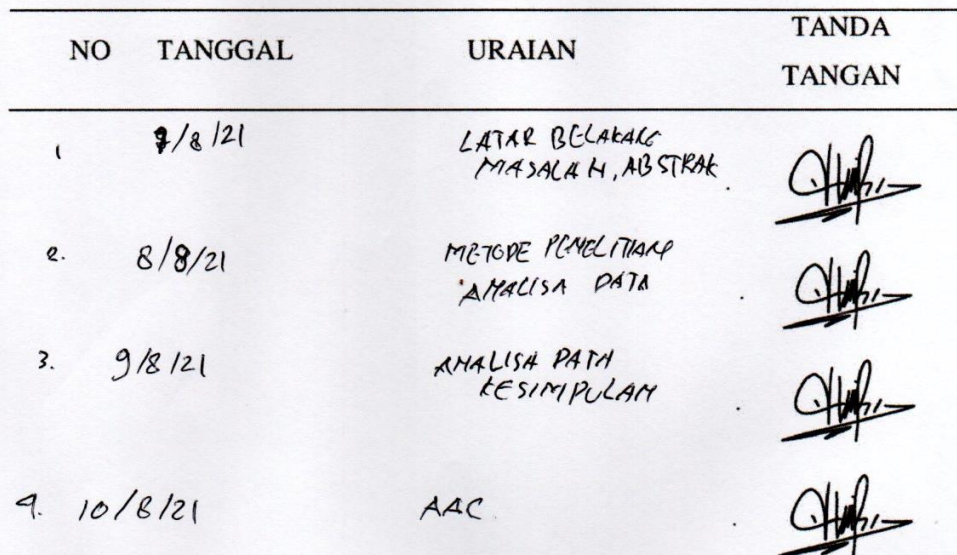 NO TANGGAL URAIAN TANDA TANGAN
1 7/8/21 LATAR BELAKANG
MASALAH, ABSTRAK
2. 8/8/21 METODE PENELITIAN
ANALISA DATA
3. 9/8/21 ANALISA DATA
KESIMPULAN
4. 10/8/21 AAC